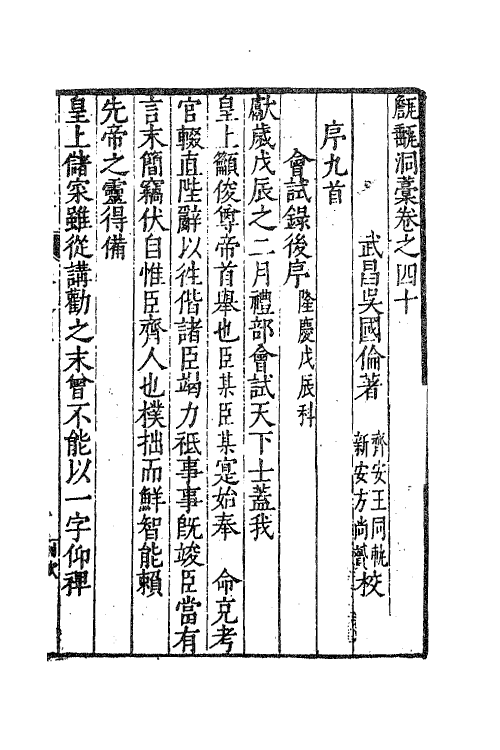 甔甀洞藁卷之四十
武昌吳國倫著
齊安王同軌
新安方尚贇校
序九首
會試錄後序隆慶戊辰科
獻歲戊辰之二月禮部會試天下士蓋我
皇上籲俊尊帝首舉也臣某臣某寔始奉 命充考
官輟直陛辭以徃偕諸臣竭力祗事事既竣臣當有
言末簡竊伏自惟臣齊人也樸拙而鮮智能賴
先帝之靈得備
皇上儲寀雖從講勸之末曾不能以一字仰裨